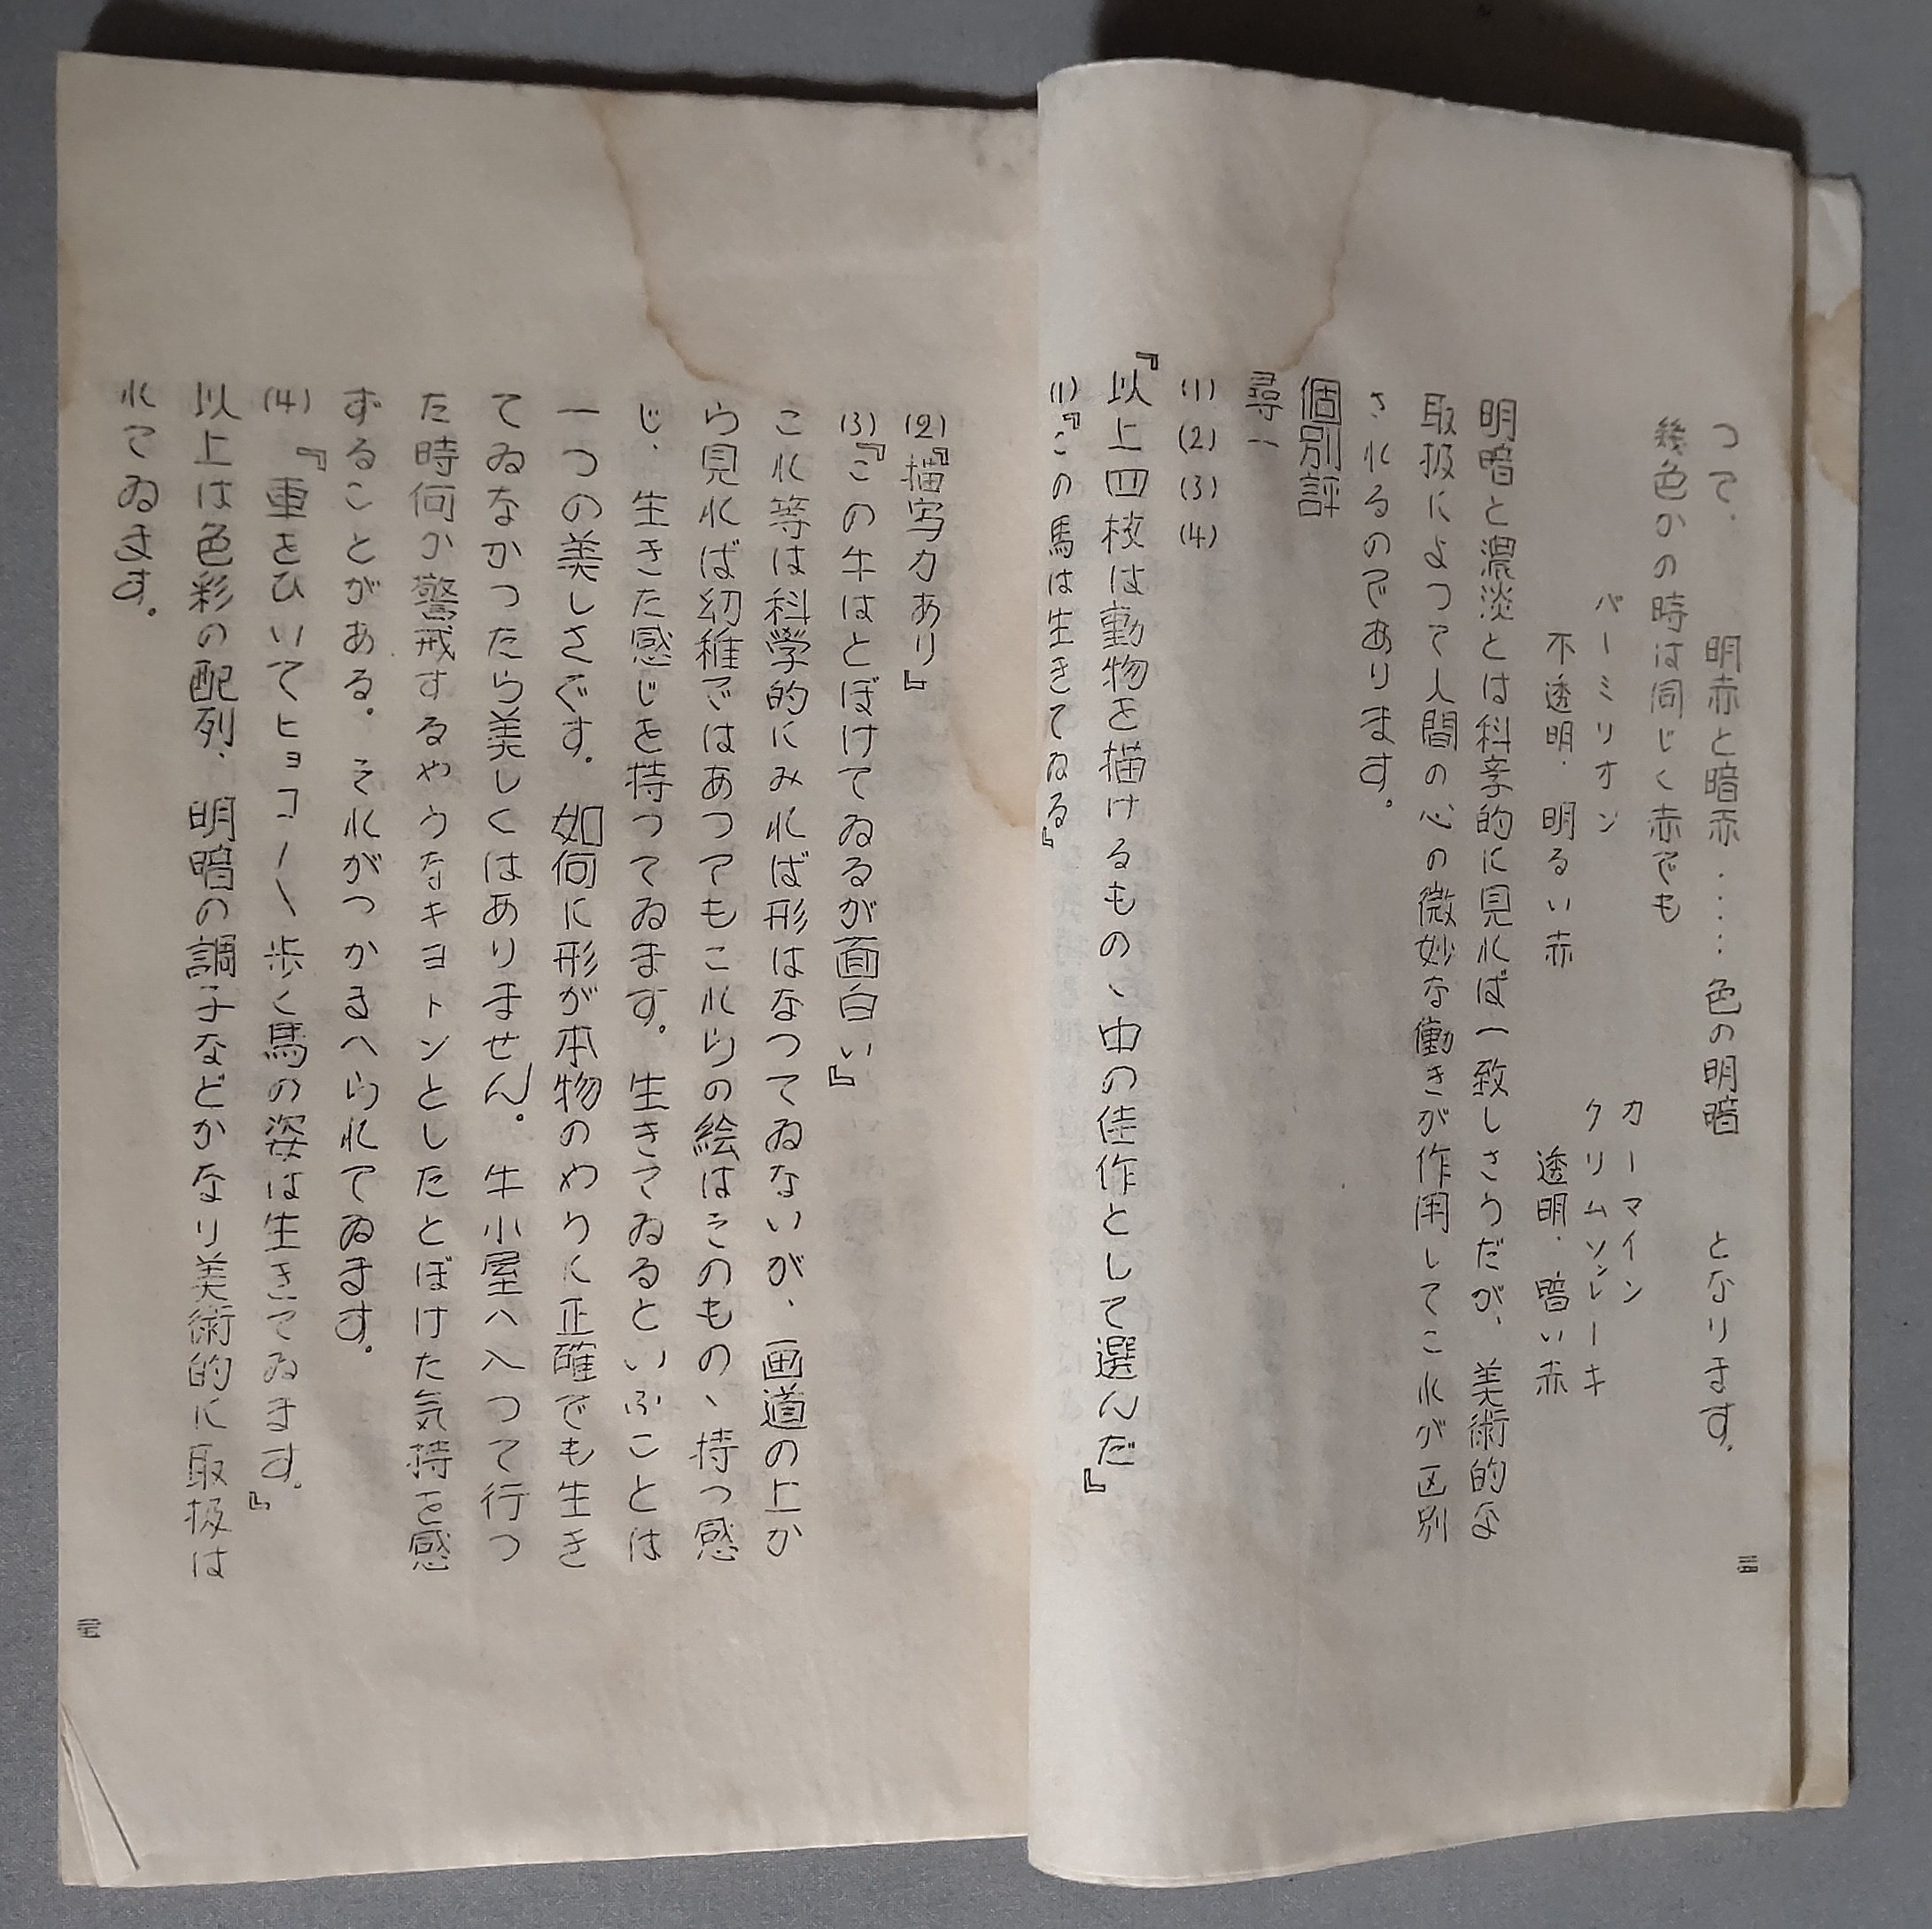 つて、　明赤と暗赤……色の明暗　となります。
幾色かの時は同じく赤でも
バーミリオン　カーマイン
クリムソンレーキ
不透明、明るい赤　透明、暗い赤
明暗と濃淡とは科学的に見れば一致しさうだが、美術的な
取扱によつて人間の心の微妙な働きが作用してこれが区別
されるのであります。
個別評
尋一
(1) (2) (3) (4)
『以上四枚は動物を描けるものゝ中の佳作として選んだ』
(1)『この馬は生きてゐる』
(2)『描写力あり』
(3)『この牛はとぼけてゐるが面白い』
これ等は科学的にみれば形はなつてゐないが、画道の上か
ら見れば幼稚ではあつてもこれらの絵はそのものゝ持つ感
じ、生きた感じを持つてゐます。生きてゐるといふことは
一つの美しさです。如何に形が本物のやうに正確でも生き
てゐなかつたら美しくはありません。牛小屋へ入つて行つ
た時何か警戒するやうなキヨトンとしたとぼけた気持を感
ずることがある。それがつかまへられてゐます。
(4)『車をひいてヒョコ〳〵歩く馬の姿は生きてゐます。』
以上は色彩の配列、明暗の調子などかなり美術的に取扱は
れてゐます。